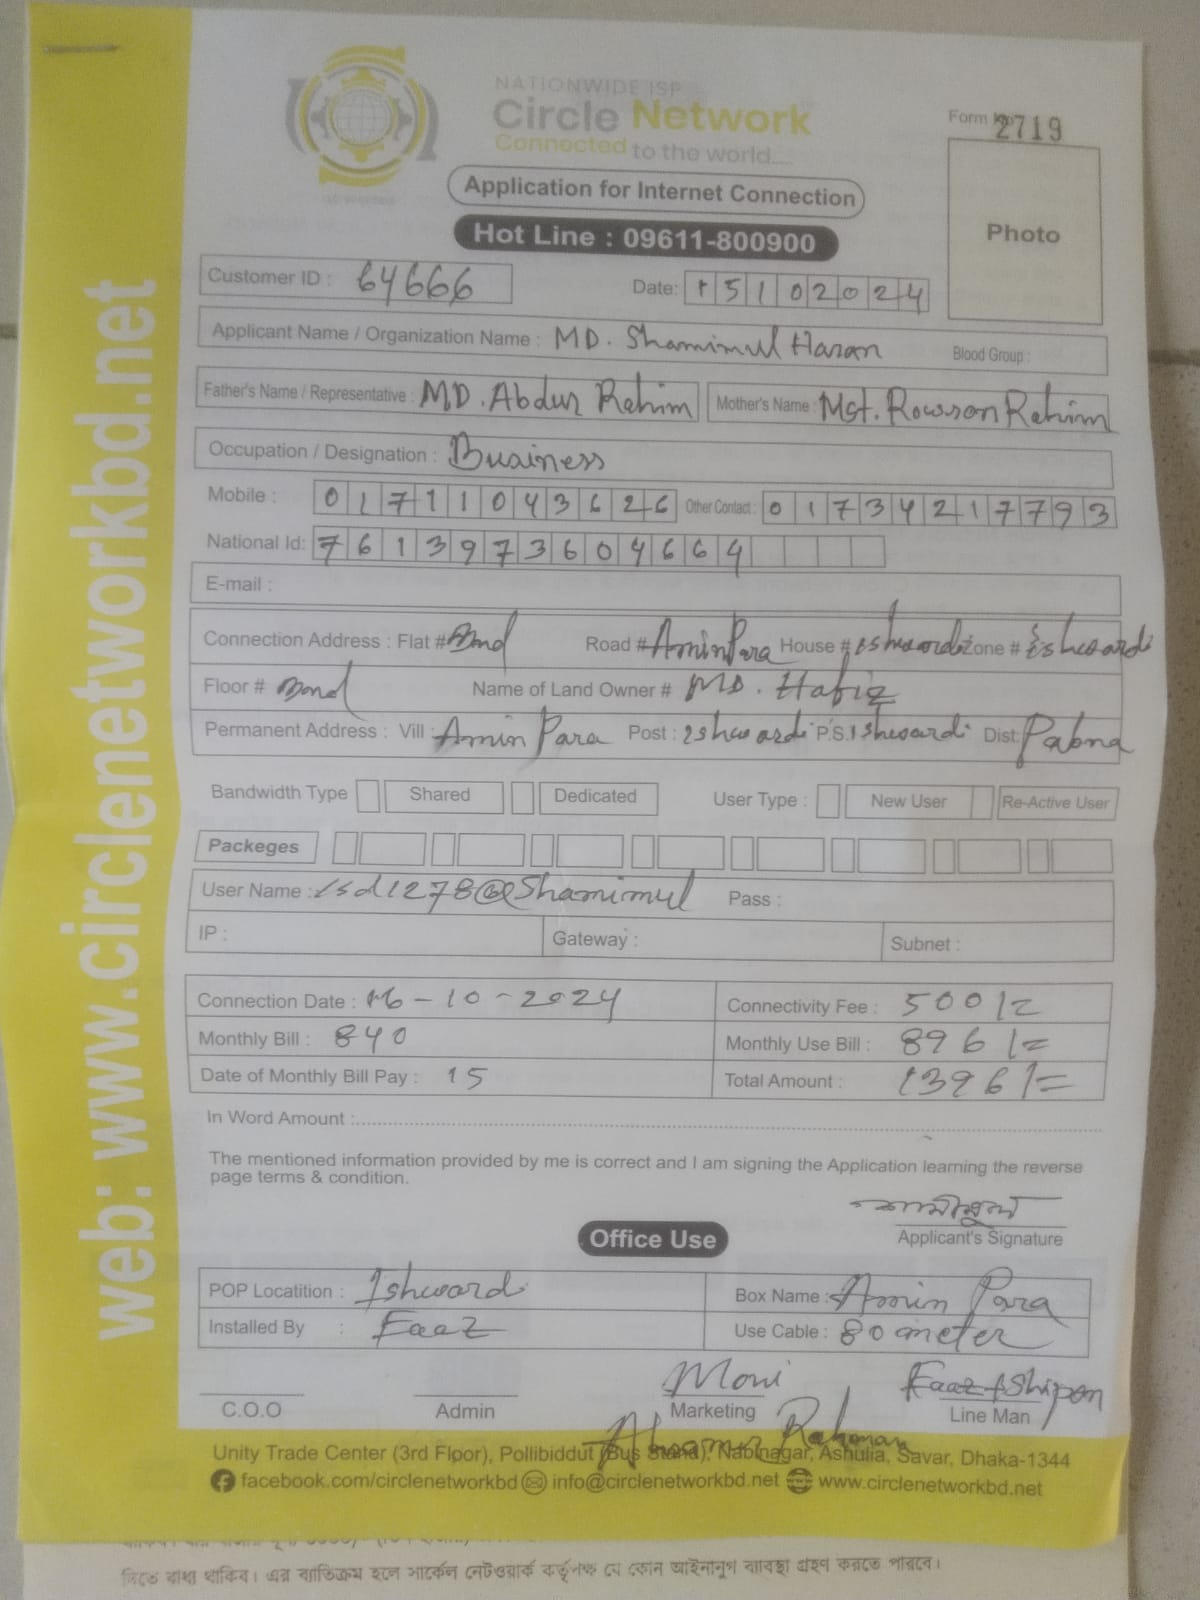 NATIONWIDE ISP
Circle Network
Connected to the world....
Form No 2719
Application for Internet Connection
Photo
Hot Line : 09611-800900
Customer ID : 64666 Date: 15102024
Applicant Name / Organization Name : MD. Shamimul Hasan Blood Group :
Father's Name / Representative : MD. Abdur Rahim Mother's Name : Mst. Rowson Rahim
Occupation / Designation : Business
Mobile : 01711043626 Other Contact : 01734217793
National Id: 7613973604664
E-mail :
Connection Address : Flat # Road # Amin Para House # ishwardi Zone # ishwardi
Floor # Name of Land Owner # MD. Hafiz
Permanent Address : Vill : Amin Para Post : ishwardi P.S. Ishwardi Dist: Pabna
Bandwidth Type Shared Dedicated User Type : New User Re-Active User
Packeges
User Name : isd1278@Shamimul Pass :
IP : Gateway : Subnet :
Connection Date : 16-10-2024 Connectivity Fee : 500/=
Monthly Bill : 840 Monthly Use Bill : 896/=
Date of Monthly Bill Pay : 15 Total Amount : 1396/=
In Word Amount :
The mentioned information provided by me is correct and I am signing the Application learning the reverse
page terms & condition.
শামীমুল
Applicant's Signature
Office Use
POP Locatition : Ishwardi Box Name : Amin Para
Installed By : Faaz Use Cable : 80 meter
Moni Faaz + Shipon
C.O.O Admin Marketing Line Man
Rahman
Unity Trade Center (3rd Floor), Pollibiddut (Bus Stand), Nabinagar, Ashulia, Savar, Dhaka-1344
facebook.com/circlenetworkbd info@circlenetworkbd.net www.circlenetworkbd.net
web: www.circlenetworkbd.net
দিতে বাধ্য থাকিব। এর ব্যতিক্রম হলে সার্কেল নেটওয়ার্ক কর্তৃপক্ষ যে কোন আইনানুগ ব্যাবস্থা গ্রহণ করতে পারবে।